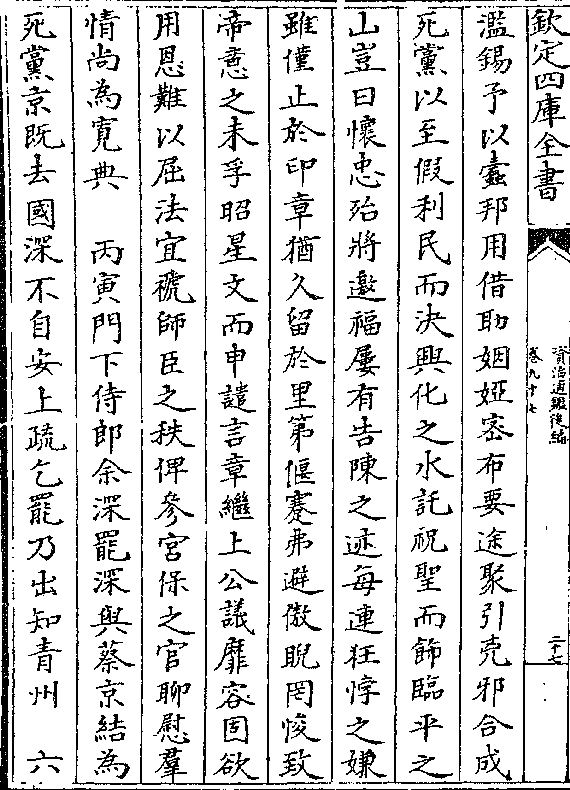 欽定四庫全書
資治通鑑後編
卷九十七
二十七
濫錫予以蠹邦用借助姻婭密布要途聚引兇邪合成
死黨以至假利民而決興化之水託祝聖而飾臨平之
山豈曰懷忠殆將邀福屢有告陳之迹每連狂悖之嫌
雖僅止於印章猶久留於里第偃蹇弗避傲睨罔悛致
帝意之未孚昭星文而申譴言章繼上公議靡容固欲
用恩難以屈法宜褫師臣之秩俾參宮保之官聊慰羣
情尚為寛典　丙寅門下侍郎余深罷深與蔡京結為
死黨京既去國深不自安上疏乞罷乃出知青州　六